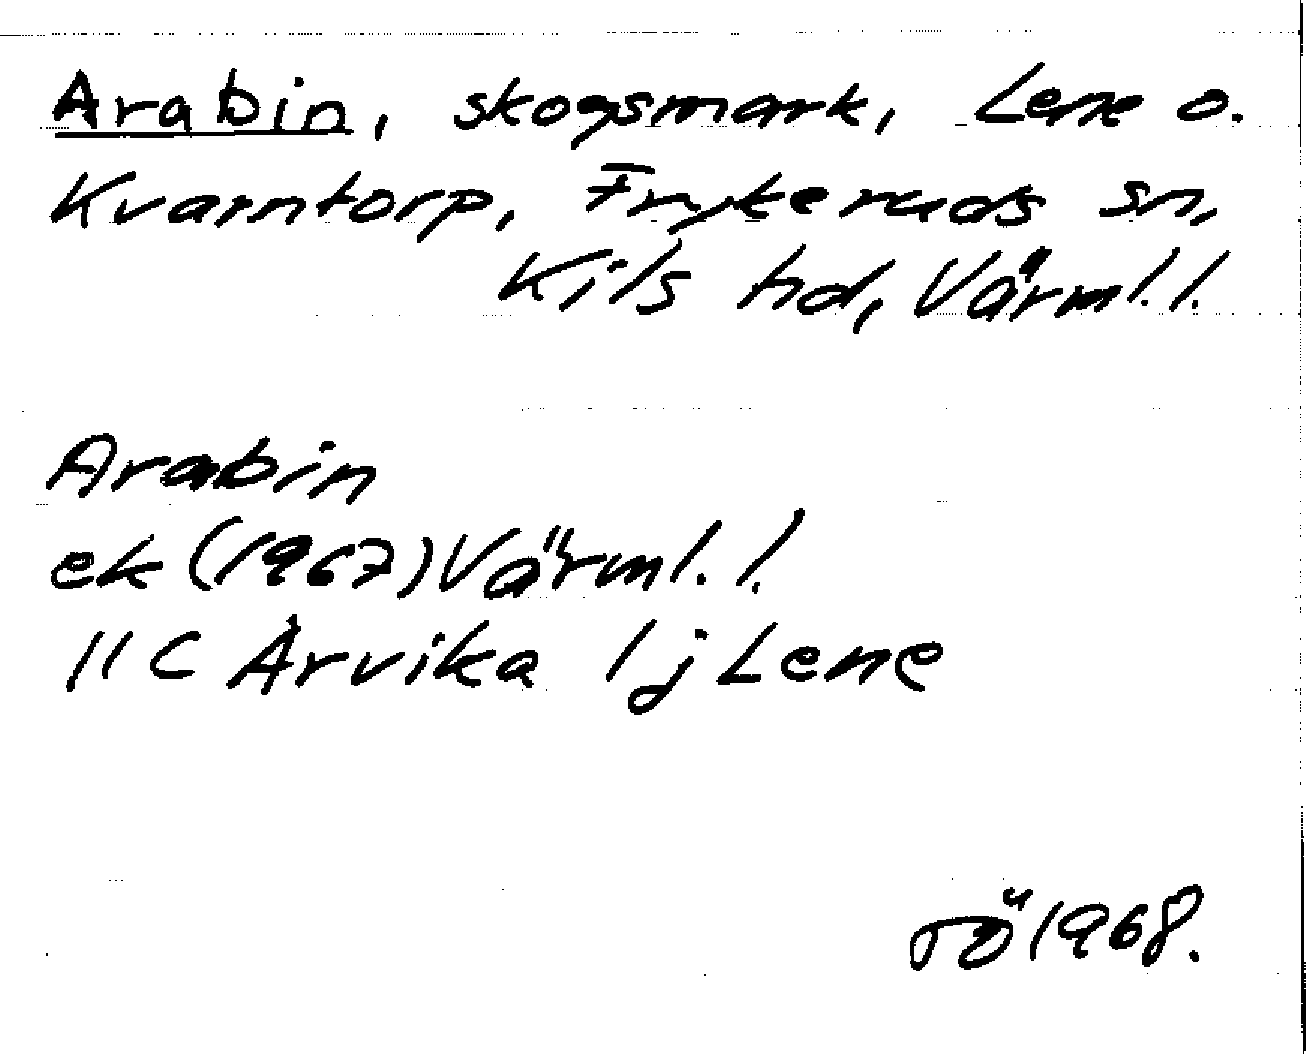 Arabin, skogsmark, Lene o.
Kvarntorp, Frykeruds sn,
Kils hd, Värml. l.
Arabin
ek (1967) Värml. l.
11C Arvika 1j Lene
TÖ 1968.